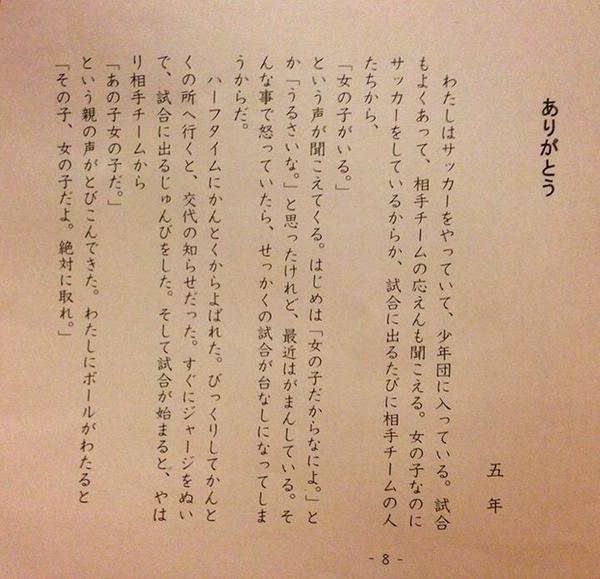 ありがとう
五年
わたしはサッカーをやっていて、少年団に入っている。試合
もよくあって、相手チームの応えんも聞こえる。女の子なのに
サッカーをしているからか、試合に出るたびに相手チームの人
たちから、
「女の子がいる。」
という声が聞こえてくる。はじめは「女の子だからなによ。」と
か「うるさいな。」と思ったけれど、最近はがまんしている。そ
んな事で怒っていたら、せっかくの試合が台なしになってしま
うからだ。
ハーフタイムにかんとくからよばれた。びっくりしてかんと
くの所へ行くと、交代の知らせだった。すぐにジャージをぬい
で、試合に出るじゅんびをした。そして試合が始まると、やは
り相手チームから
「あの子女の子だ。」
という親の声がとびこんできた。わたしにボールがわたると
「その子、女の子だよ。絶対に取れ。」
- 8 -